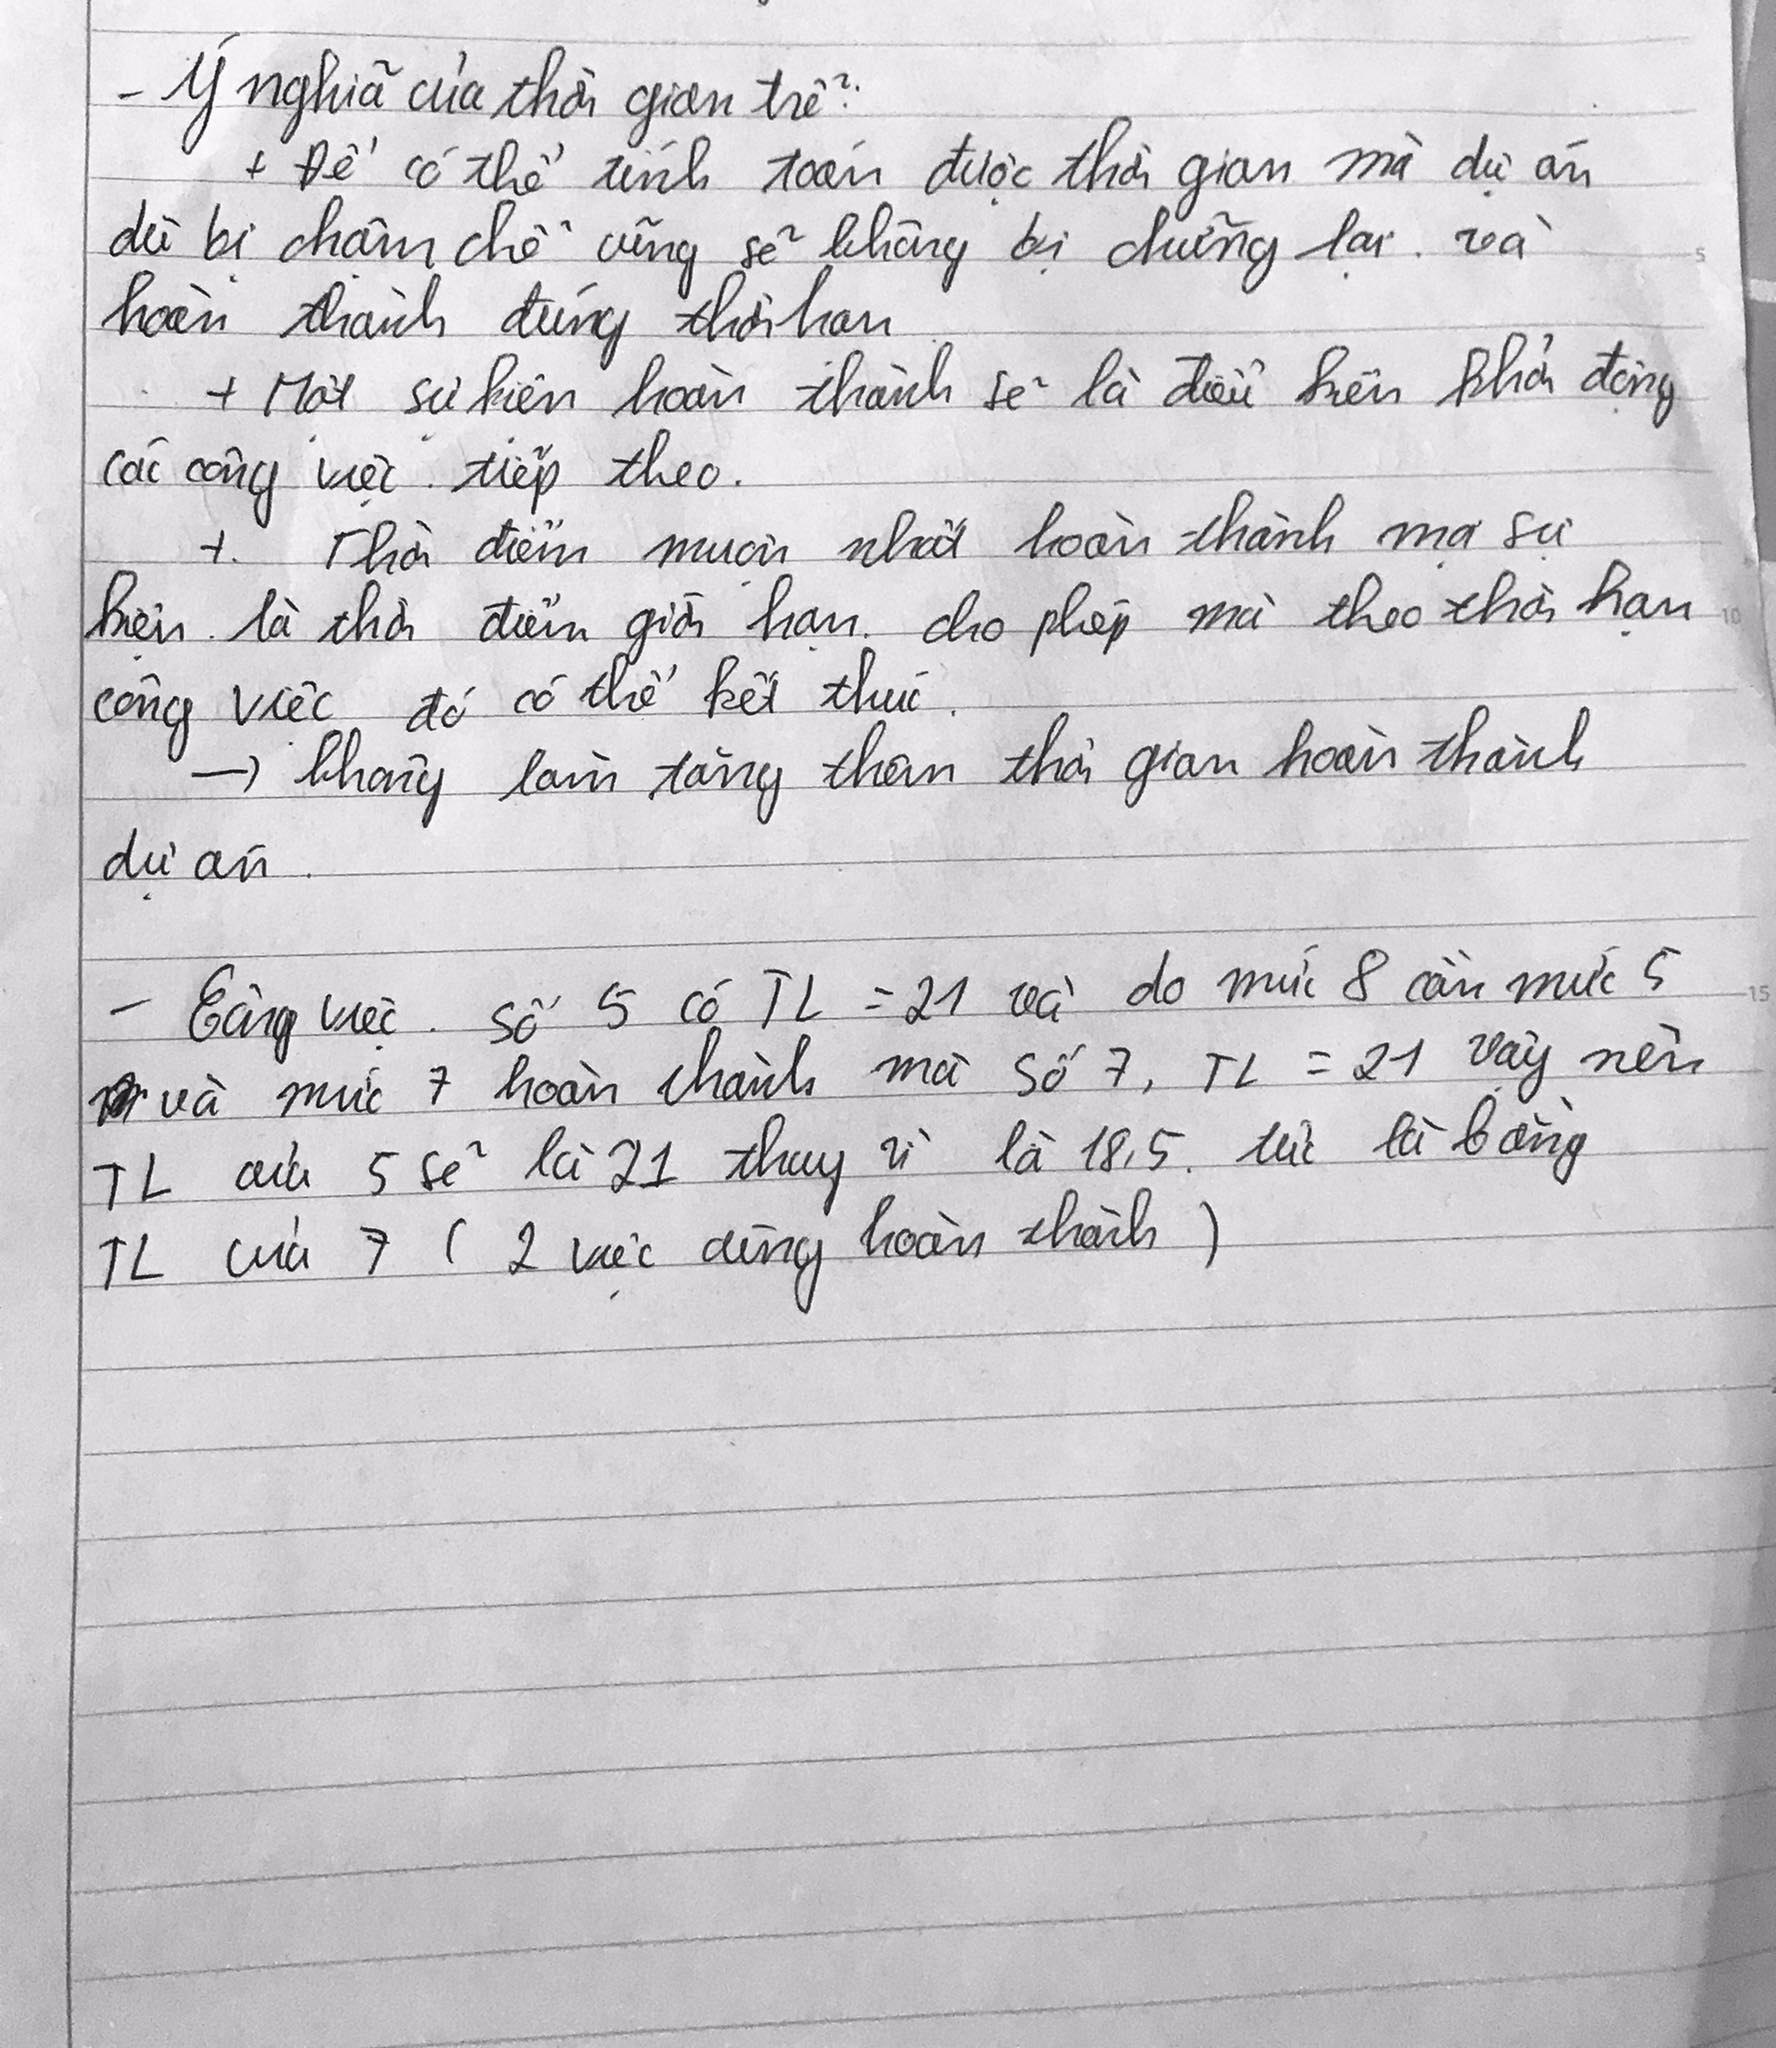 - Ý nghĩa của thời gian trễ:
+ Để có thể tính toán được thời gian mà dự án
dù bị chậm chễ cũng sẽ không bị chững lại. và
hoàn thành đúng thời hạn
+ Một sự kiện hoàn thành sẽ là điều kiện khởi động
các công việc. tiếp theo.
+. Thời điểm muộn nhất hoàn thành mọi sự
kiện. là thời điểm giới hạn. cho phép mà theo thời hạn
công việc đó có thể kết thúc.
→ không làm tăng thêm thời gian hoàn thành
dự án.
- Công việc. số 5 có TL = 21 và do mức 8 cần mức 5
và mức 7 hoàn thành mà số 7, TL = 21 vậy nên
TL của 5 sẽ là 21 thay vì là 18,5. tức là bằng
TL của 7 ( 2 việc cùng hoàn thành )
5
10
15